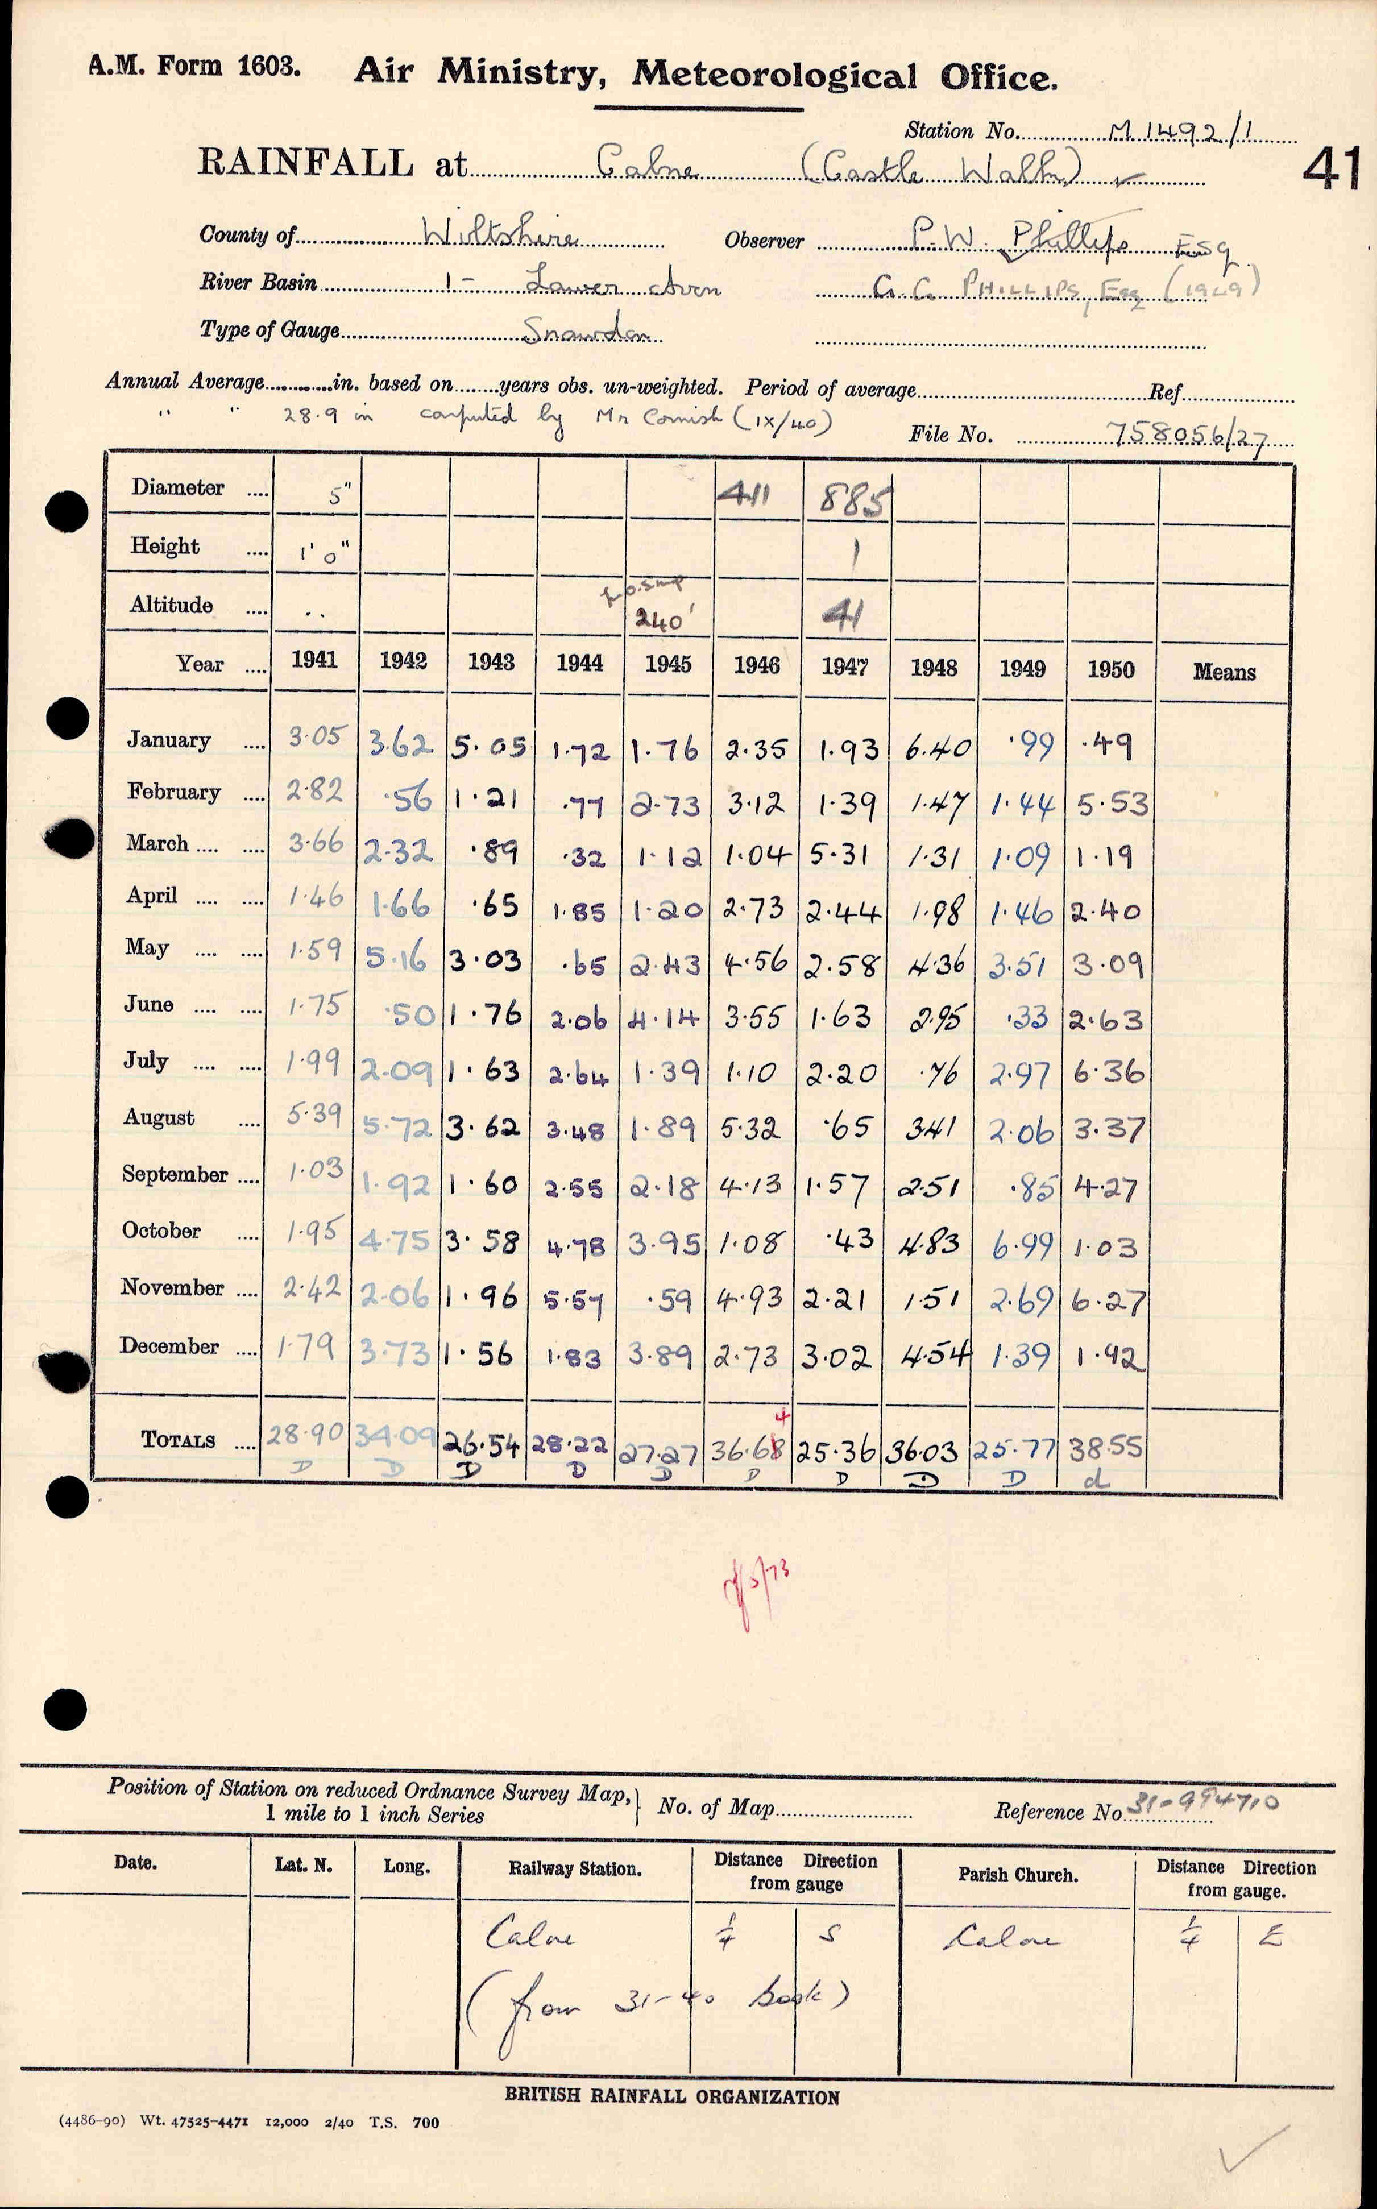 A.M. Form 1603. Air Ministry, Meteorological Office.
Station No. M 1492/1
RAINFALL at Calne (Castle Walk) ✓
41
County of Wiltshire Observer P.W. Phillips Esq
River Basin 1- Lower Avon G.C. PHILLIPS, Esq (1949)
Type of Gauge Snowdon
Annual Average in. based on years obs. un-weighted. Period of average Ref
" " 28.9 in computed by Mr Cornish (IX/40)
File No. 758056/27
Diameter 5" 411 885
Height 1' 0" 1
Altitude .. 240' 41
Year 1941 1942 1943 1944 1945 1946 1947 1948 1949 1950 Means
January 3.05 3.62 5.05 1.72 1.76 2.35 1.93 6.40 .99 .49
February 2.82 .56 1.21 .77 2.73 3.12 1.39 1.47 1.44 5.53
March 3.66 2.32 .89 .32 1.12 1.04 5.31 1.31 1.09 1.19
April 1.46 1.66 .65 1.85 1.20 2.73 2.44 1.98 1.46 2.40
May 1.59 5.16 3.03 .65 2.43 4.56 2.58 4.36 3.51 3.09
June 1.75 .50 1.76 2.06 4.14 3.55 1.63 2.95 .33 2.63
July 1.99 2.09 1.63 2.64 1.39 1.10 2.20 .76 2.97 6.36
August 5.39 5.72 3.62 3.48 1.89 5.32 .65 3.41 2.06 3.37
September 1.03 1.92 1.60 2.55 2.18 4.13 1.57 2.51 .85 4.27
October 1.95 4.75 3.58 4.78 3.95 1.08 .43 4.83 6.99 1.03
November 2.42 2.06 1.96 5.57 .59 4.93 2.21 1.51 2.69 6.27
December 1.79 3.73 1.56 1.83 3.89 2.73 3.02 4.54 1.39 1.92
4
TOTALS 28.90 34.09 26.54 28.22 27.27 36.68 25.36 36.03 25.77 38.55
D D D D D D D D D d
Position of Station on reduced Ordnance Survey Map,
1 mile to 1 inch Series
No. of Map Reference No 31-994710
Date. Lat. N. Long. Railway Station. Distance Direction from gauge Parish Church. Distance Direction from gauge.
Calne 1/4 S Calne 1/4 E
(from 31-40 book)
BRITISH RAINFALL ORGANIZATION
(4486-90) Wt. 47525-4471 12,000 2/40 T.S. 700